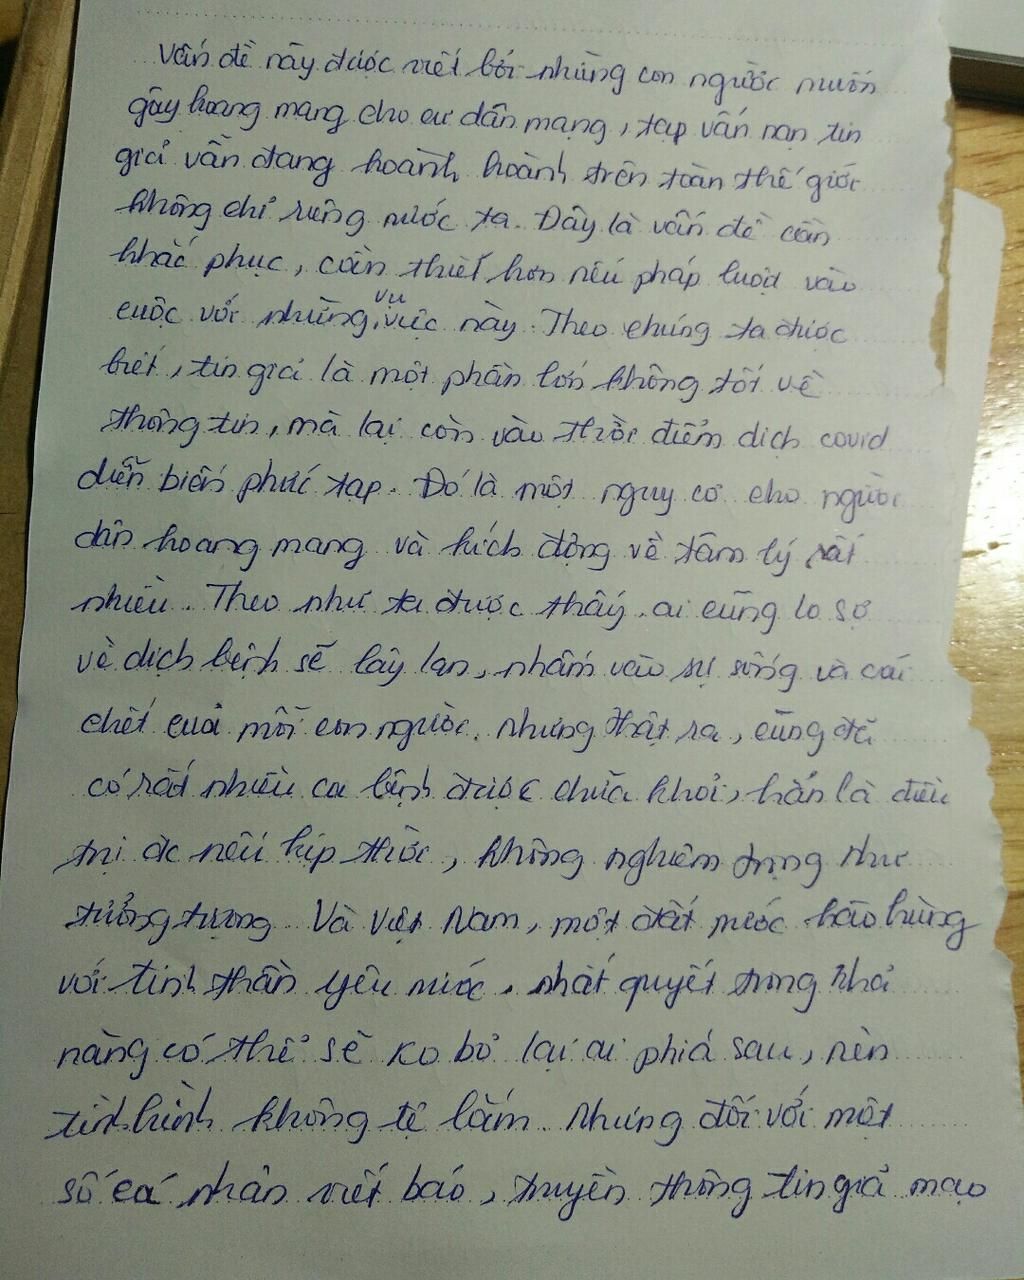 Vấn đề này được viết bởi những con người muốn
gây hoang mang cho cư dân mạng, tạp vấn nạn tin
giả vẫn đang hoành hoành trên toàn thế giới
không chỉ riêng nước ta. Đây là vấn đề cần
khắc phục, cần thiết hơn nếu pháp luật vào
cuộc với những vụ việc này. Theo chúng ta được
biết, tin giả là một phần lớn không tốt về
thông tin, mà lại còn vào thời điểm dịch covid
diễn biến phức tạp. Đó là một nguy cơ cho người
dân hoang mang và kích động về tâm lý rất
nhiều. Theo như ta được thấy, ai cũng lo sợ
về dịch bệnh sẽ lây lan, nhắm vào sự sống và cái
chết của mỗi con người. Nhưng thật ra, cũng đã
có rất nhiều ca bệnh được chữa khỏi, hẳn là điều
trị đc nếu kịp thời, không nghiêm trọng như
tưởng tượng. Và Việt Nam, một đất nước hào hùng
với tinh thần yêu nước, nhất quyết trong khả
năng có thể sẽ ko bỏ lại ai phía sau, nên
tình hình không tệ lắm. Nhưng đối với một
số cá nhân viết báo, truyền thông tin giả mạo